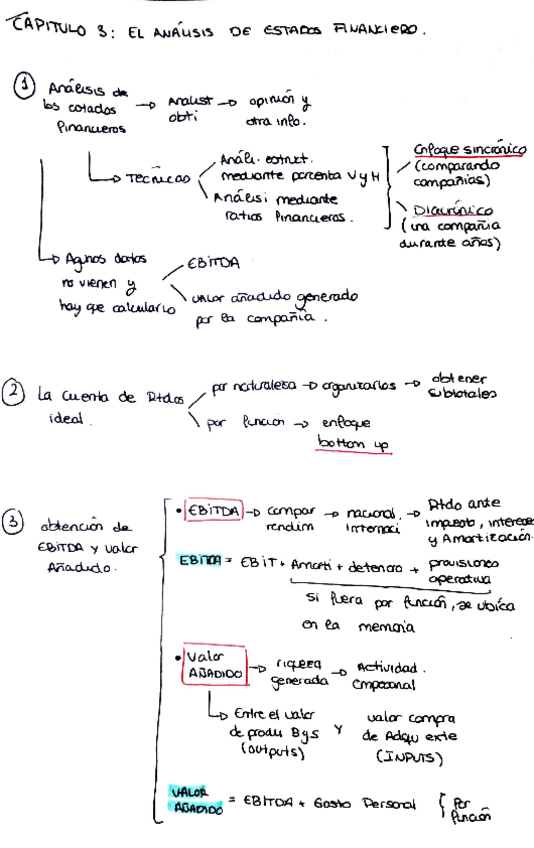 CAPITULO 3: EL ANÁLISIS DE ESTADOS FINANCIERO.
1 Análisis de los estados financieros → Analist obti → opinión y otra info.
→ TECNICAS
Análi. estruct. mediante porcenta V y H
Análisi mediante ratios financieros.
Enfoque sincrónico (comparando compañias)
Diacrónico (una compañia durante años)
→ Agnos datos no vienen y hay que calcularlo
EBITDA
valor añadido generado por la compañía.
2 La cuenta de Rtdos ideal.
por naturaleza → organizarlos → obtener subtotales
por función → enfoque bottom up
3 obtención de EBITDA y valor Añadido.
• EBITDA → compar rendim → nacional. internaci → Rtdo ante impuesto, interese y Amortización.
EBITDA = EBIT + Amorti + deterioro + provisiones operativa
si fuera por función, se ubica en la memoria
• Valor AÑADIDO → riqueza generada → Actividad. Empresarial
→ Entre el valor de produ Bys (outputs) y valor compra de Adqu exte (INPUTS)
VALOR AÑADIDO = EBITDA + Gasto Personal { Por función